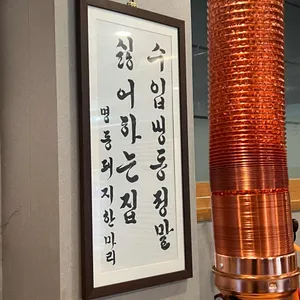 수입냉동정말
싫어하는집
명동돼지한마리